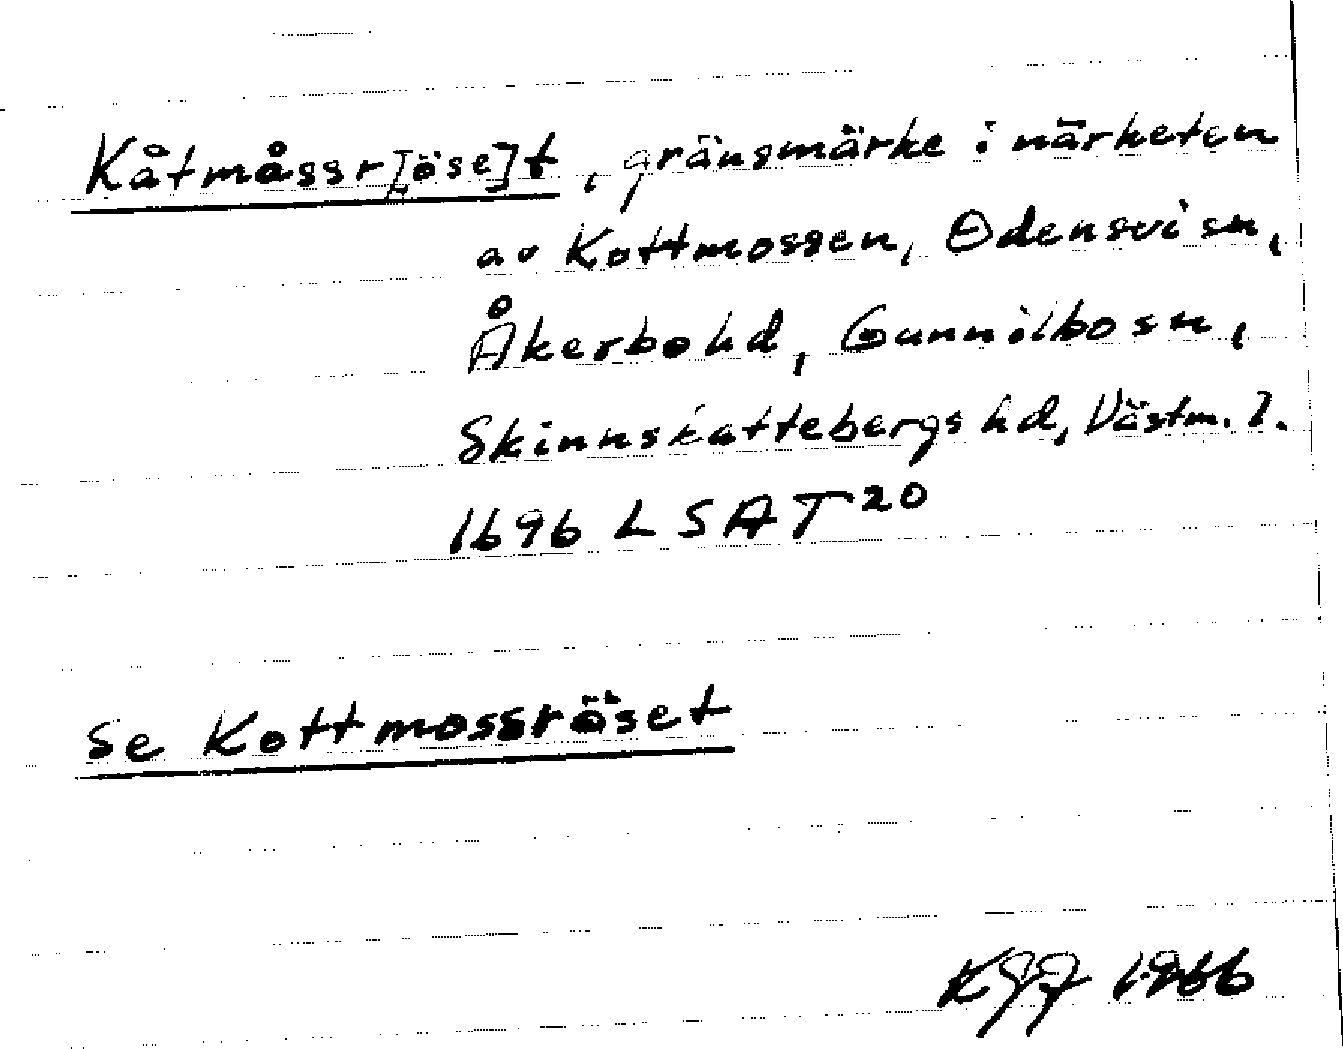 Kåtmåssr[öse]t, gränsmärke i närheten
av Kottmossen, Odensvi sn,
Åkerbo hd, Gunnilbo sn,
Skinnskattebergs hd, Västm. l.
1696 LSA T 20
Se Kottmossröset
KGJ 1966